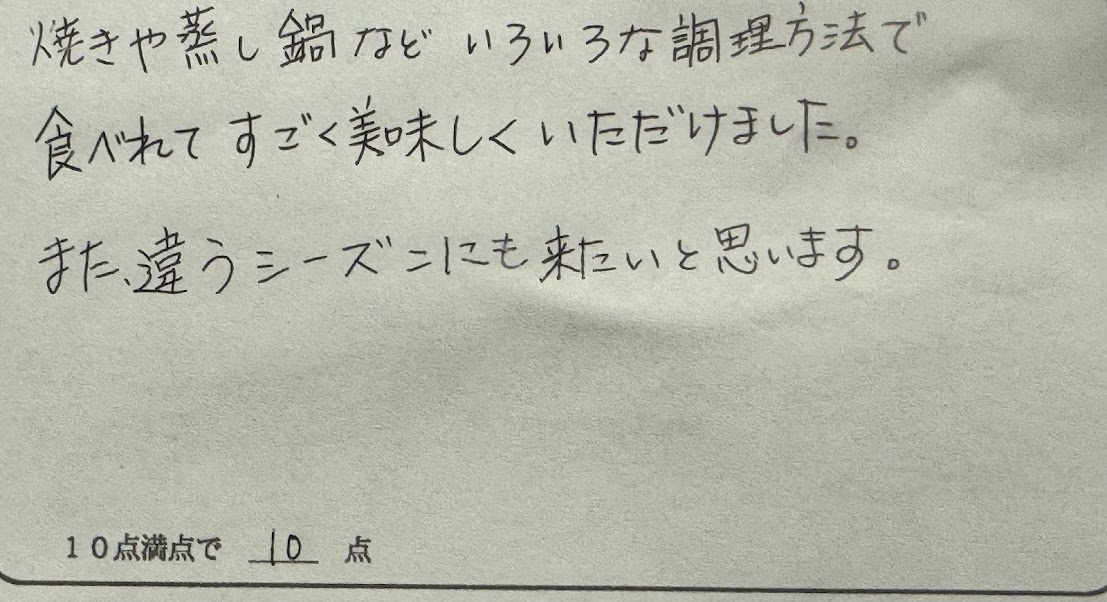 焼きや蒸し鍋などいろいろな調理方法で
食べれてすごく美味しくいただけました。
また、違うシーズンにも来たいと思います。
10点満点で 10 点